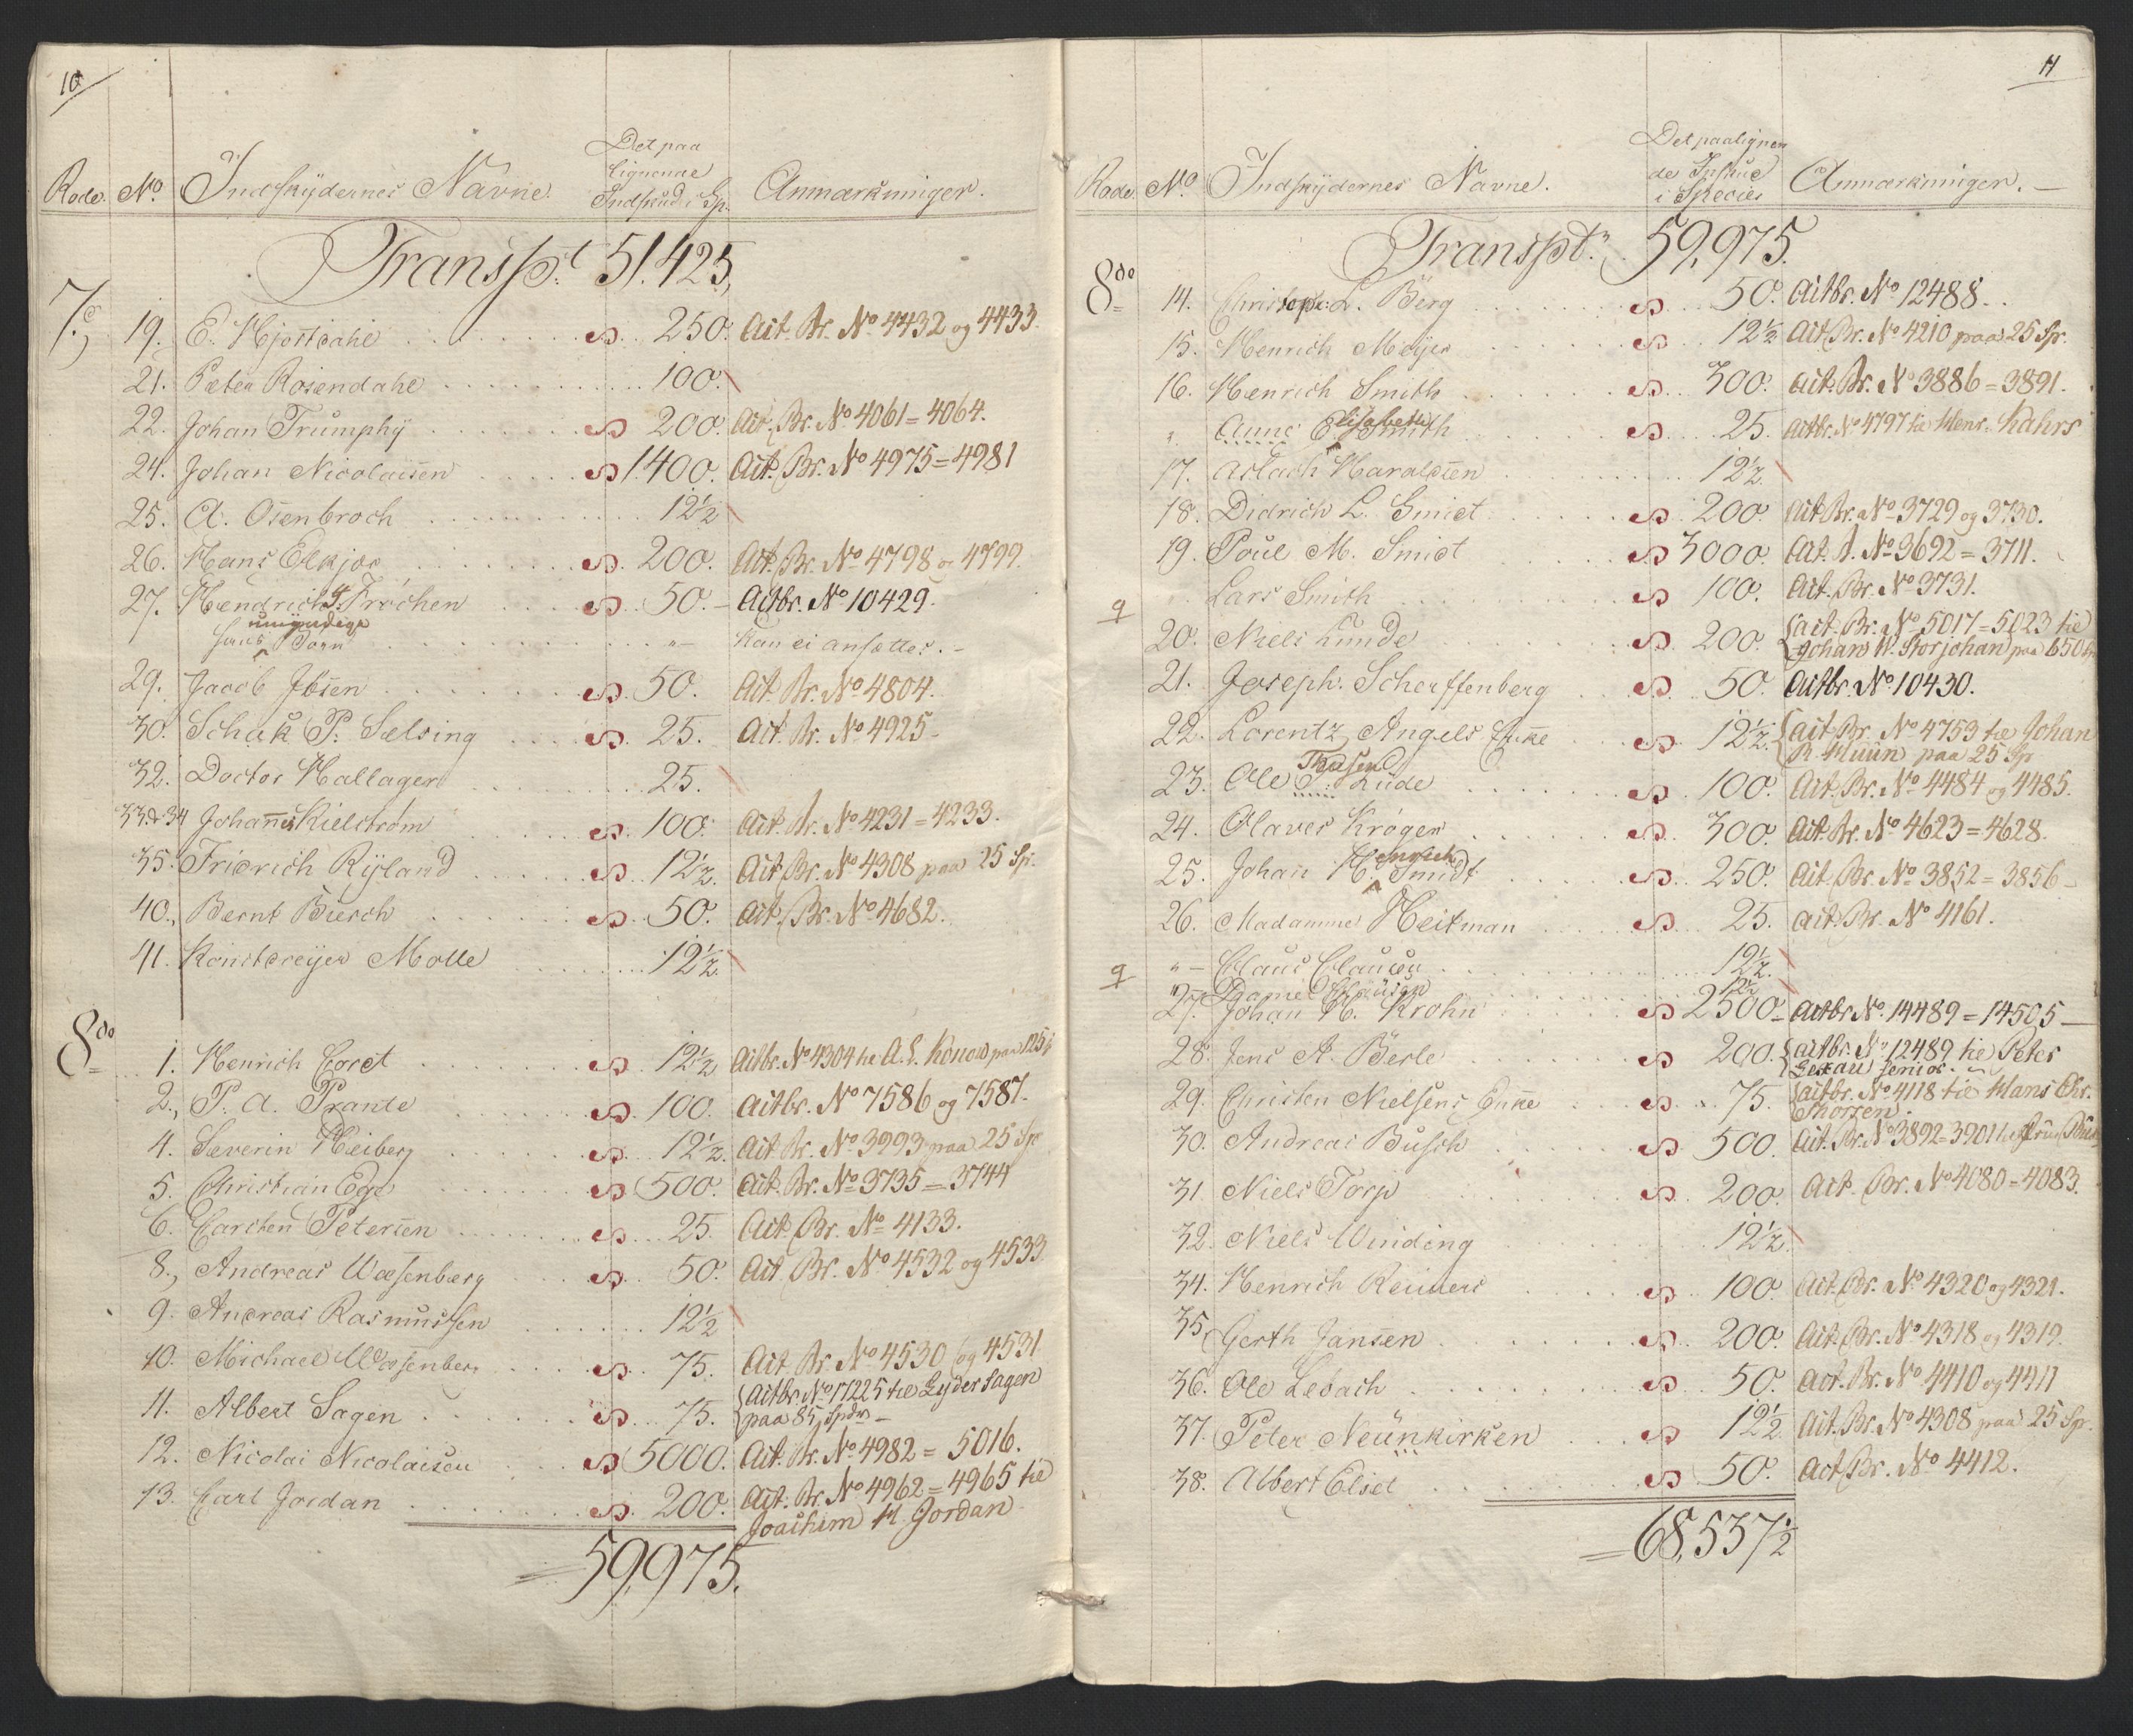 10
Rode. No. Indskydernes Navne. Det paa lignende Indskud i Sp. Anmærkninger.
Transpt. 51,425,
7de 19. E. Hjortdahl S 250. Act. Br. No 4432 og 4433.
21. Peter Rosendahl 100.
22. Johan Trumphy S 200. Act. Br. No 4061 = 4064.
24. Johan Nicolaisen S 1400. Act. Br. No 4975 = 4981
25. A. Osenbroch 12½
26. Hans Elkjær S 200. Act. Br. No 4798 og 4799.
27. Hendrich J. Frøchen S 50. – Actbr. No 10429.
hans umyndige Børn „ – Kan ei ansættes. –
29. Jacob Ibsen S 50. Act. Br. No 4804.
30. Schak P. Sælsing S 25. Act. Br. No 4925 –
32. Doctor Hallager 25.
33 & 34 Johannes Kielstrøm S 100. Act. Br. No 4231 = 4233.
35. Fridrich Ryland S 12½. Act. Br. No 4308 paa 25 Sp.
40. Bernt Buesch S 50. Act. Br. No 4682.
41. Konstdreyer Molle 12½.
8de 1. Henrich Cordt S 12½ Actbr. No 4304 til A. L. Konow paa 125 Sp
2. P. A. Prante S 100. Actbr. No 7586 og 7587.
4. Severin Heiberg S 12½. Act. Br. No 3993 paa 25 Sp
5. Christian Ege S 500. Act. Br. No 3735 = 3744
6. Carsten Petersen S 25. Act. Br. No 4133.
8. Andreas Wæsenberg S 50. Act. Br. No 4532 og 4533
9. Andreas Rasmussen 12½
10. Michael Wæsenberg S 75. Act. Br. No 4530 og 4531
11. Albert Sagen S 75. Actbr. No 11225 til Lyder Sagen
paa 85 Spdr –
12. Nicolai Nicolaisen S 5000. Act. Br. No 4982 = 5016.
13. Carl Jordan S 200. Act. Br. No 4962 = 4965 til
Joachim H. Jordan
= 59,975.
11
Rode. No. Indskydernes Navne. Det paalignende Indskud i Species Anmærkninger. –
Transpt. 59,975.
8de 14. Christoph: L. Berg S 50. Actbr. No 12488.
15. Henrich Meyer S 12½ Act. Br. No 4210 paa 25 Sp.
16. Henrich Smith S 300. Act. Br. No 3886 = 3891.
„ Anne Elisabeth Smith S 25. Actbr. No 4797 til Henr. Kahrs
17. Aslach Haraldsen 12½.
18. Didrich L. Smidt S 200. Act. Br. No 3729 og 3730.
19. Poul M. Smidt S 3000. Act. Br. No 3692 = 3711.
q Lars Smith S 100. Act. Br. No 3731.
20. Niels Lunde S 200. Act. Br. No 5017 = 5023 til
Johan W. Storjohan paa 650 Sp
21. Joseph. Scherffenberg S 50. Actbr. No 10430.
22. Lorentz Angels Enke S 12½. Act. Br. No 4753 til Johan
R. Muun paa 25 Sp
23. Ole Thuesen Lude S 100. Act. Br. No 4484 og 4485.
24. Olaves Krøger S 300. Act. Br. No 4623 = 4628.
25. Johan Henrich Smidt S 250. Act. Br. No 3852 = 3856 –
26. Madamme Heitman S 25. Act. Br. No 4161.
q „ – Claus Clausen 12½.
„ Daniel Clausen 12½
27. Johan H. Krohn S 2500 – Actbr No. 14489 = 14505 –
28. Jens A. Berle S 200. Actbr. No 12489 til Peter
senior. –
29. Christen Nielsens Enke S 75. Actbr. No 4118 til Hans Chr.
30. Andreas Busch S 500. Act. Br. No 3892 = 3901 til
31. Niels Torp S 200. Act. Br. No 4080 = 4083.
32. Niels Winding 12½.
34. Henrich Reimers S 100. Act. Br. No 4320 og 4321.
35. Gerth Jansen S 200. Act. Br. No 4318 og 4319.
36. Ole Lebach S 50. Act. Br. No 4410 og 4411
37. Peter Neünkirken S 12½. Act. Br. No 4308 paa 25 Sp.
38. Albert Elset S 50. Act. Br. No 4412.
= 68,537½